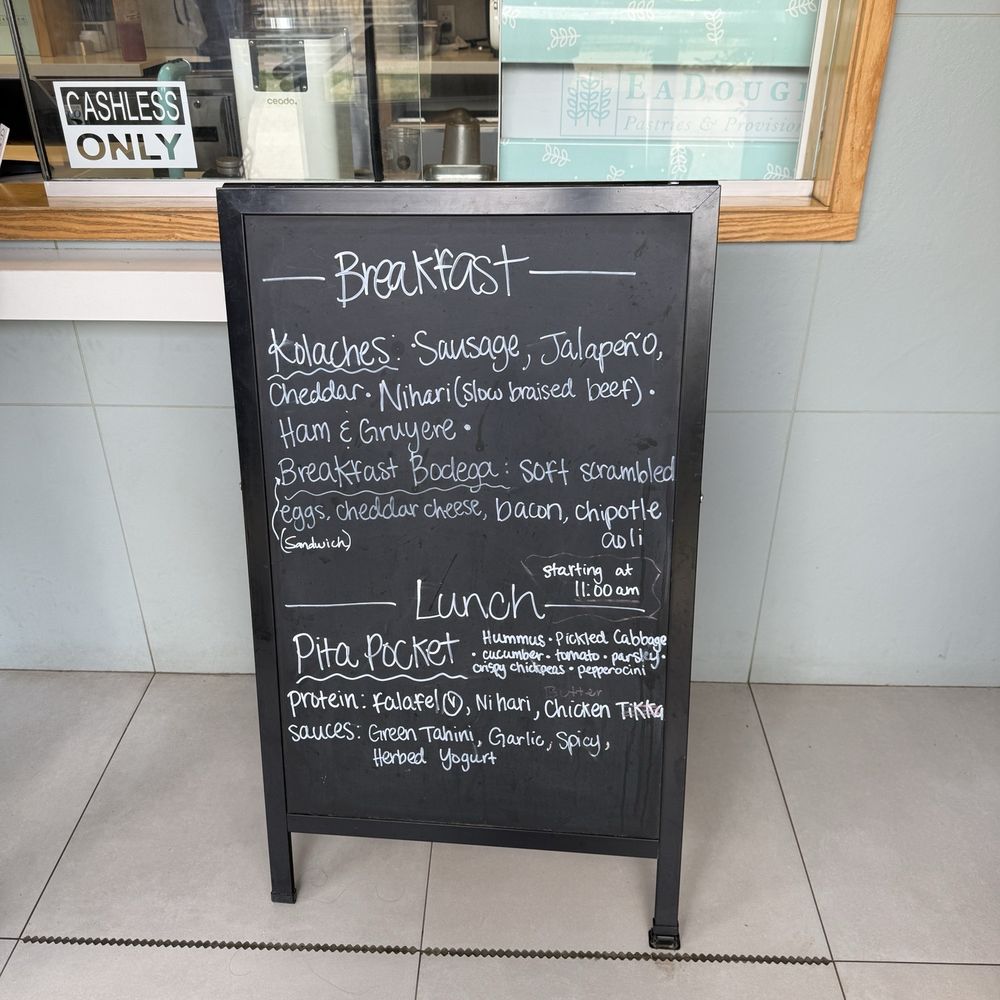 CASHLESS
ONLY
ceado
EADOUG
Pastries & Provision
Breakfast
Kolaches: •Sausage, Jalapeño,
Cheddar • Nihari (slow braised beef) •
Ham & Gruyere •
Breakfast Bodega: soft scrambled
eggs, cheddar cheese, bacon, chipotle
(Sandwich) aoli
starting at
11:00 am
Lunch
Pita Pocket
Hummus • Pickled Cabbage
• cucumber • tomato • parsley •
crispy chickpeas • pepperocini
Butter
protein: falafel Ⓥ, Nihari, Chicken Tikka
sauces: Green Tahini, Garlic, Spicy,
Herbed Yogurt